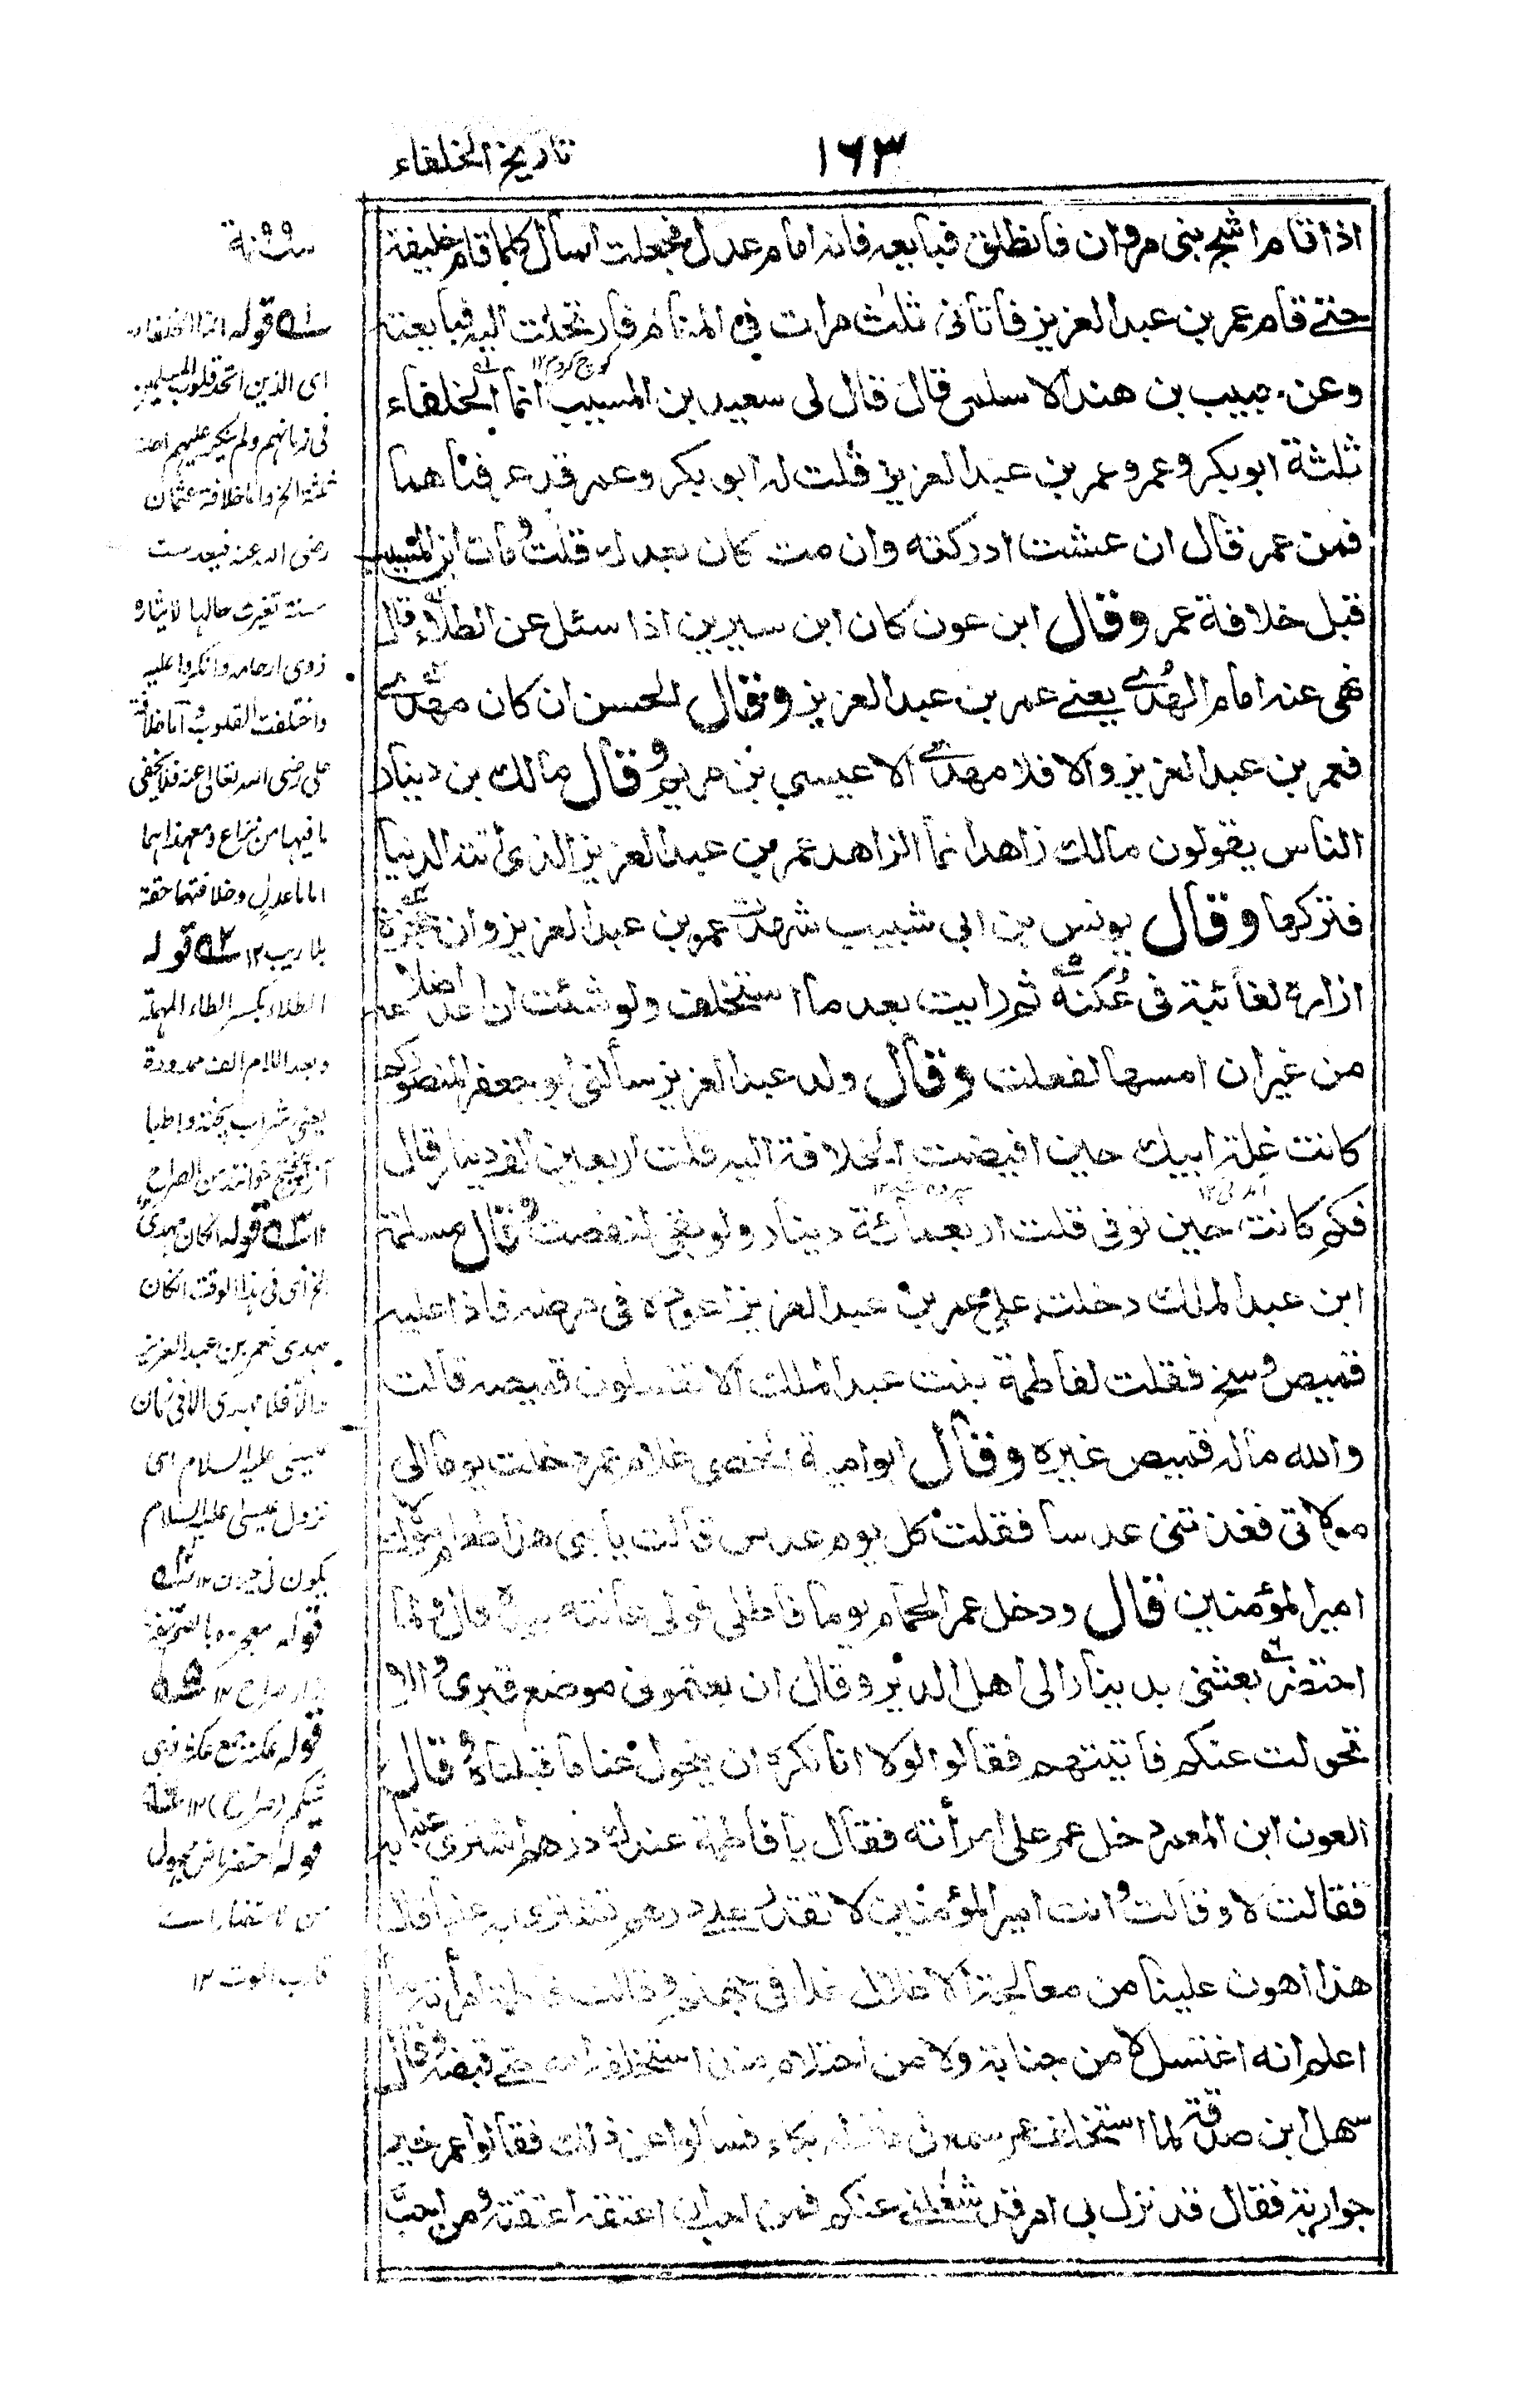 تاريخ الخلفاء
١٦٣
اذا قام اشج بنى مروان فانطلق فبايعه فانه امام عدل فجعلت اسأل كلما قام خليفة
حتى قام عمر بن عبد العزيز فأتانى ثلث مرات فى المنام فارتحلت اليه فبايعته
وعن حبيب بن هند الاسلمى قال قال لى سعيد بن المسيب انما الخلفاء
ثلثة ابو بكر وعمر وعمر بن عبد العزيز قلت له ابو بكر وعمر قد عرفناهما
فمن عمر قال ان عشت ادركته وان مت كان بعدك قلت ومات ابن المسيب
قبل خلافة عمر وقال ابن عون كان ابن سيرين اذا سئل عن الطلاء قال
نهى عنه امام الهدى يعنى عمر بن عبد العزيز وقال الحسن ان كان مهدى
فعمر بن عبد العزيز والا فلا مهدى الا عيسى بن مريم وقال مالك بن دينار
الناس يقولون مالك زاهد انما الزاهد عمر بن عبد العزيز الذى اتته الدنيا
فتركها وقال يونس بن ابى شبيب شهدت عمر بن عبد العزيز وان حجزة
ازاره لغائبة فى عكنه ثم رايته بعد ما استخلف ولو شئت ان اعد اضلاعه
من غير ان امسها لفعلت وقال ولد عبد العزيز سألنى ابو جعفر المنصور كم
كانت غلة ابيك حين افيضت الخلافة اليه قلت اربعين الف دينار قال
فكم كانت حين توفى قلت اربعمائة دينار ولو بقى لنقصت وقال مسلمة
ابن عبد الملك دخلت على عمر بن عبد العزيز اعوده فى مرضه فاذا عليه
قميص وسخ فقلت لفاطمة بنت عبد الملك الا تغسلون قميصه قالت
والله ماله قميص غيره وقال ابو امية الخصى غلام عمر دخلت يوما الى
مولاتى فغذتنى عدسا فقلت كل يوم عدس قالت يا بنى هذا طعام مولاك
امير المؤمنين قال ودخل عمر الحمام يوما فاطلى فولى عانته بيده قال ولما
احتضر بعثنى بدينار الى اهل الدير وقال ان بعتمونى موضع قبرى والا
تحولت عنكم فأتيتهم فقالوا لولا انا نكره ان يتحول عنا ما قبلناه وقال
العون ابن المعمر دخل عمر على امرأته فقال يا فاطمة عندك درهم اشترى به عنبا
فقالت لا وقالت وانت امير المؤمنين لا تقدر على درهم تشترى به عنبا قال
هذا اهون علينا من معالجة الاغلال غدا فى جهنم وقالت فاطمة امرأته ما
اعلم انه اغتسل لا من جنابة ولا من احتلام منذ استخلفه الله حتى قبضه وقال
سهل ابن صدقة لما استخلف عمر سمع فى منزله بكاء فسألوا عن ذلك فقالوا عمر خير
جواريه فقال قد نزل بى امر قد شغلنى عنكم فمن احب ان اعتقه اعتقته ومن احب
سنة ٩٩
قوله انما الخلفاء
اى الذين اتحد قلوب المسلمين
فى زمانهم ولم ينكر عليهم احد
ثلثة الخ واما خلافة عثمان
رضى الله عنه فبعد ست
سنة تغيرت حالها لايثاره
ذوى ارحامه وانكروا عليه
واختلفت القلوب واما خلافة
على رضى الله تعالى عنه فلا يخفى
ما فيها من نزاع ومعهذا هما
اماما عدل وخلافتهما حقة
بلا ريب ١٢ قوله
الطلاء بكسر الطاء المهملة
وبعد اللام الف ممدودة
١٢ قوله ان كان مهدى
الخ اى فى هذا الوقت ان كان
مهدى فعمر بن عبد العزيز
والا فلا مهدى الا فى زمان
عيسى عليه السلام اى
نزول عيسى عليه السلام
قوله
قوله عكنه جمع عكنة
شكم (صراح) ١٢
قوله احتضر ماض مجهول
من الاحتضار است
قارب الموت ١٢